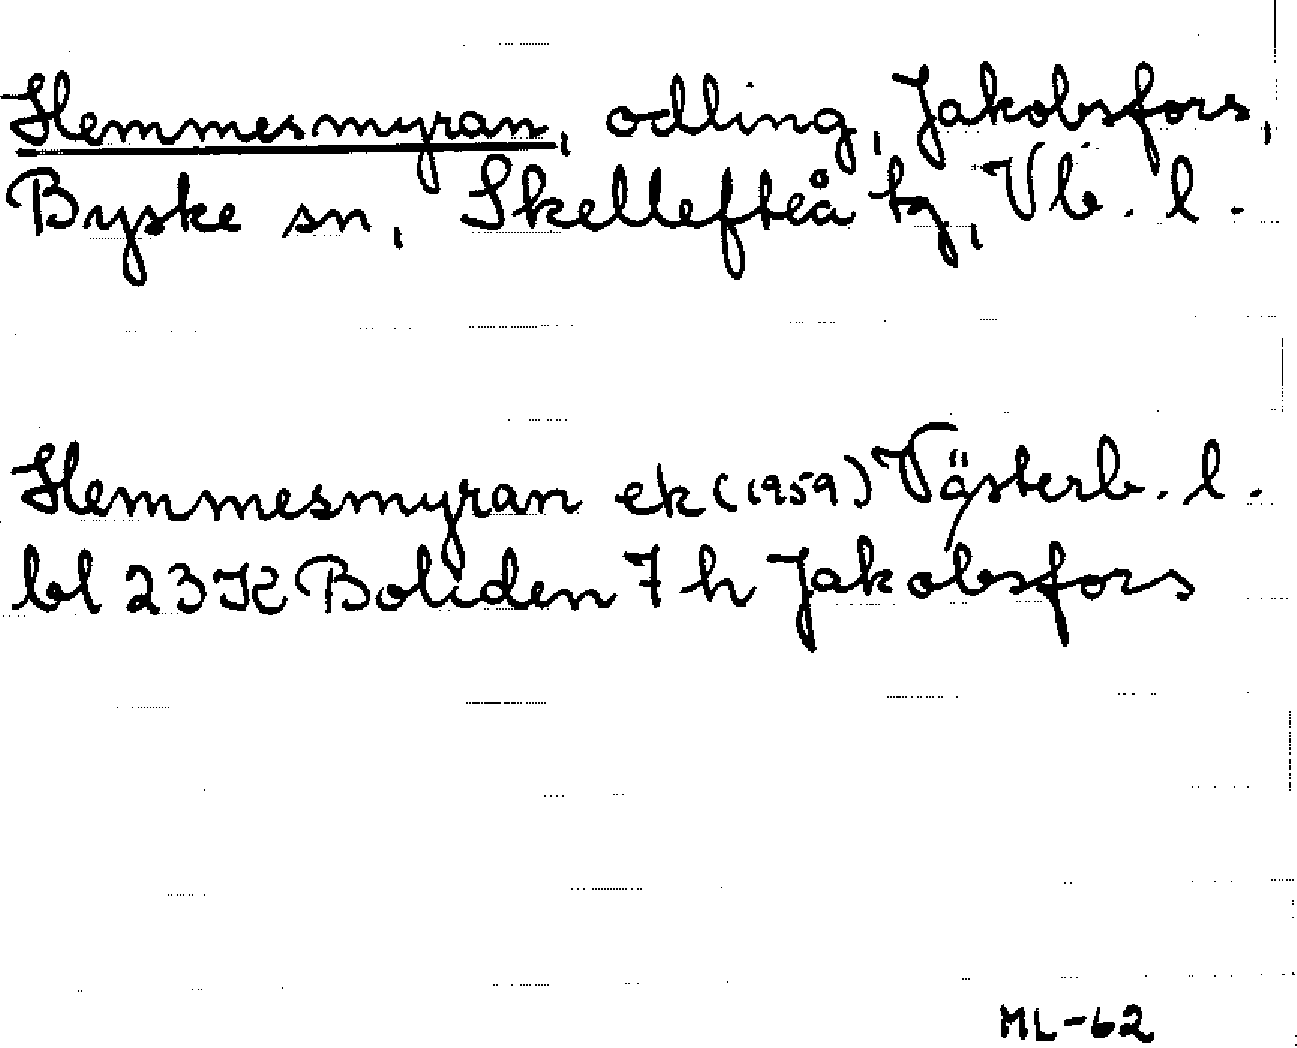 Hemmesmyran, odling, Jakobsfors,
Byske sn, Skellefteå tg, Vb. l.
Hemmesmyran ek (1959) Västerb. l.
bl 23K Boliden 7 h Jakobsfors
ML-62